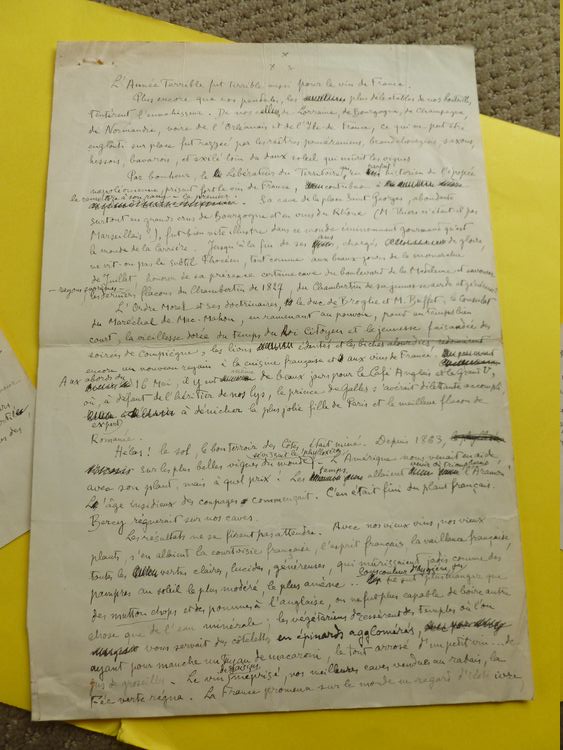 x
x x
L'Année Terrible fut terrible aussi pour le vin de France.
Plus encore que nos pendules, les plus délectables de nos bouteilles
tentèrent l'envahisseur. De nos celliers de Lorraine, de Bourgogne, de Champagne,
de Normandie, voire de l'Orléanais et de l'Ile de France, ce qui ne put être
englouti sur place fut razzié par les reîtres poméraniens, brandebourgeois, saxons,
hessois, bavarois, et exilé loin du doux soleil qui mûrit les vignes
Par bonheur, le Libérateur du Territoire, en historien de l'épopée
napoléonienne, prisant fort le vin de France, contribua à
le remettre à son rang - le premier. Sa cave de la place Saint Georges, abondante
surtout en grands crus de Bourgogne et en crus du Rhône (M. Thiers n'était-il pas
Marseillais ?), fut bien vite illustre dans ce monde éminemment gourmand qu'est
le monde de la carrière. Jusqu'à la fin de ses ans, chargés de gloire,
ne vit-on pas le subtil Phocéen, tout comme aux beaux jours de la monarchie
de Juillet honorer de sa présence certaine cave du boulevard de la Madeleine et savourer
- rayons suprêmes - les derniers flacons du Chambertin de 1827, du Chambertin de sa jeunesse verte et généreuse ?
L'Ordre Moral et ses doctrinaires, le duc de Broglie et M. Buffet, le Consulat
du Maréchal de Mac-Mahon, en ramenant au pouvoir, pour un temps bien
court, la vieillesse dorée du temps du Roi Citoyen et la jeunesse faisandée des
soirées de Compiègne, les lions édentés et les biches alourdies, redonnèrent
encore un nouveau regain à la cuisine française et aux vins de France.
Aux abords du 16 Mai, il y eut de beaux jours pour le Café Anglais et le Grand V,
où, à défaut de l'héritier de nos lys, le prince de Galles s'avérait dilettante accompli
expert à dénicher la plus jolie fille de Paris et le meilleur flacon de
Romanée.
Hélas ! le sol, le bon terroir des Côtes, était miné. Depuis 1863,
sévissait le phylloxéra sur les plus belles vignes du monde. L'Amérique nous venait en aide,
avec son plant, mais à quel prix ! Les temps allaient venir où triomphera l'Aramon
L'âge insidieux des coupages commençait. C'en était fini du plant français.
Bercy régnerait sur nos caves.
Les résultats ne se firent pas attendre. Avec nos vieux vins, nos vieux
plants, s'en allaient la courtoisie française, l'esprit français la vaillance française,
toutes les vertus claires, lucides, généreuses, qui mûrissaient jadis comme des
pampres au soleil le plus modéré, le plus amène... Sous couleur d'hygiène, on ne sut plus manger que
des mutton chops et des pommes à l'anglaise, on ne fut plus capable de boire autre
chose que de l'eau minérale. Les végétariens dressèrent des temples où l'on
vous servait des côtelettes en épinards agglomérés,
ayant pour manche un tuyau de macaroni, le tout arrosé d'un petit vin... de
jus de groseilles. Le vin méprisé, nos meilleures caves vendues au rabais, la
Fée verte régna. La France promena sur le monde un regard d'